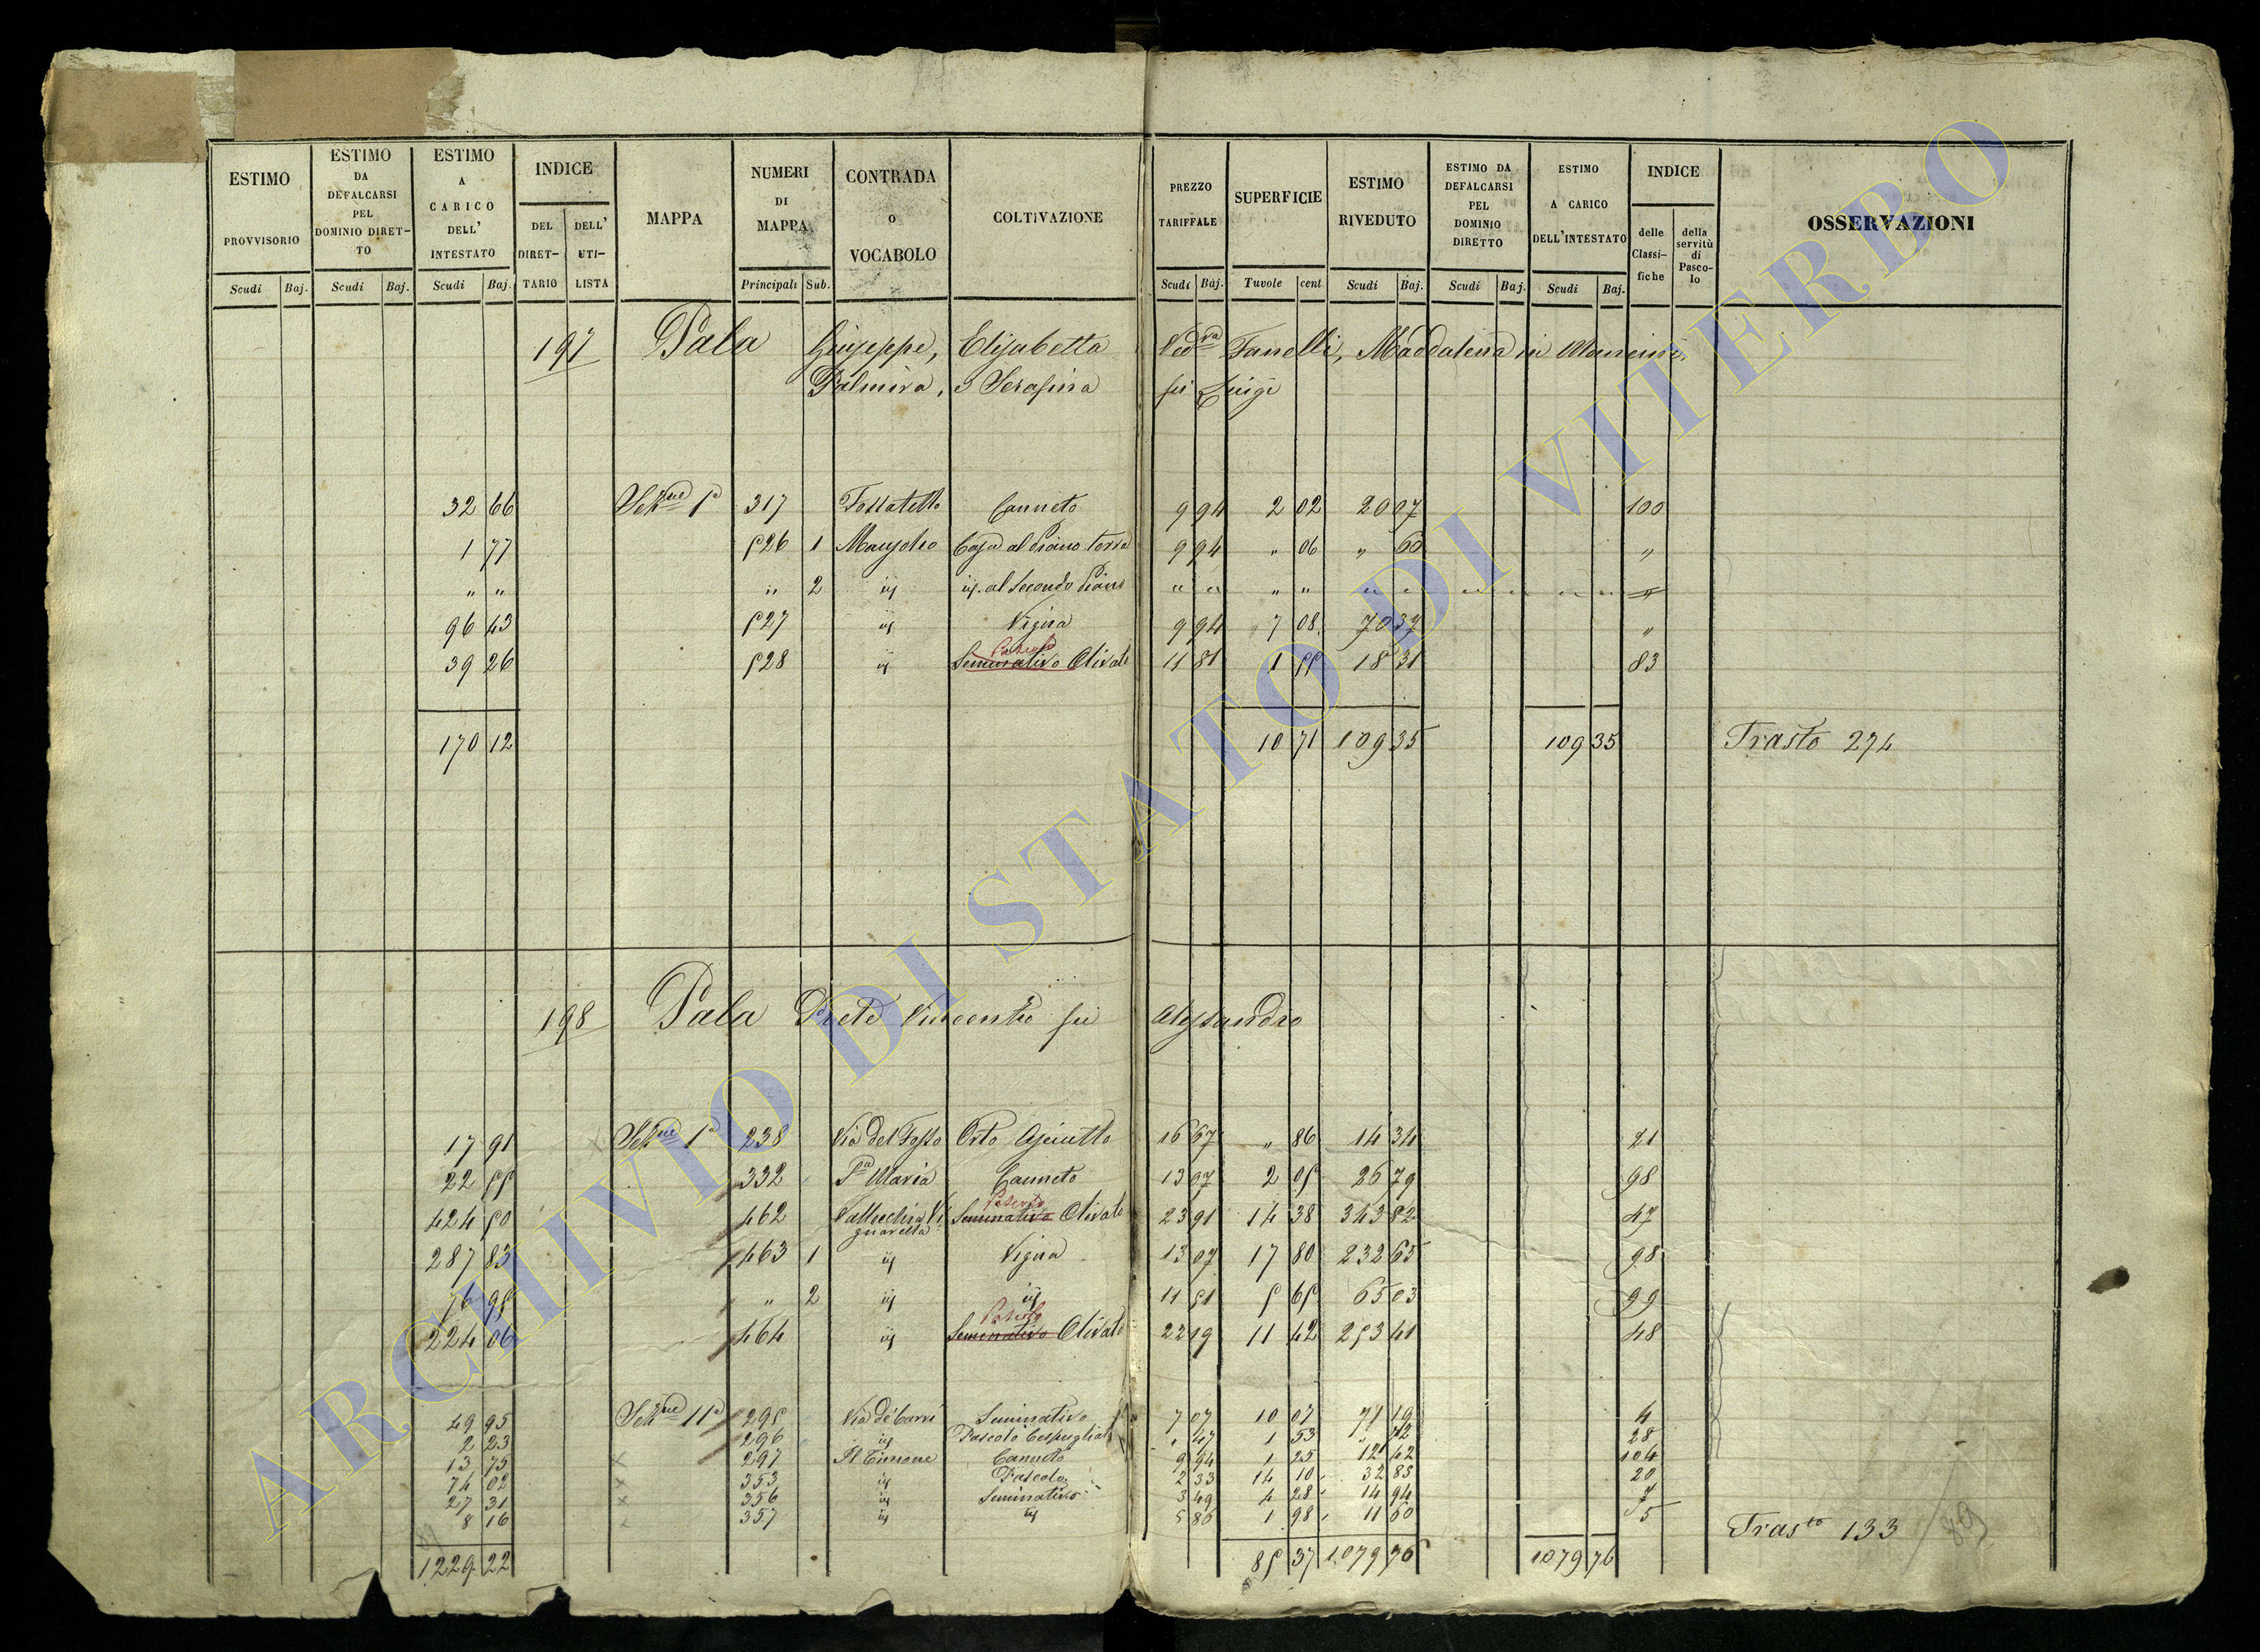 ESTIMO PROVVISORIO Scudi Baj.
ESTIMO DA DEFALCARSI PEL DOMINIO DIRET-TO Scudi Baj.
ESTIMO A CARICO DELL' INTESTATO Scudi Baj.
INDICE DEL DIRET-TARIO DELL' UTI-LISTA
MAPPA
NUMERI DI MAPPA Principali Sub.
CONTRADA O VOCABOLO
COLTIVAZIONE
PREZZO TARIFFALE Scudi Baj.
SUPERFICIE Tavole cent
ESTIMO RIVEDUTO Scudi Baj.
ESTIMO DA DEFALCARSI PEL DOMINIO DIRETTO Scudi Baj.
ESTIMO A CARICO DELL'INTESTATO Scudi Baj.
INDICE delle Classi-fiche della servitù di Pasco-lo
OSSERVAZIONI
197 Pala Giuseppe, Elisabetta Vedva Fanelli, Maddalena in
Palmira, e Serafina fu Luigi
32 66 Sezne 1a 317 Fossatello Canneto 9 94 2 02 20 07 100
1 77 526 1 Mausoleo Casa al Piano terra 9 94 " 06 " 60 "
" " " 2 ij ij. al Secondo Piano " " " " " " " " " " "
96 43 527 ij Vigna 9 94 7 08 70 37 "
39 26 528 ij Seminativo Pascolo Olivato 11 81 1 55 18 31 83
170 12 10 71 109 35 109 35 Trasto 274
198 Pala Prete Vincenzo fu Alessandro
17 91 Sezne 1a 238 Via del Fosso Orto Asciutto 16 67 " 86 14 34 21
22 55 332 Sa Maria Canneto 13 07 2 05 26 79 98
424 50 462 Vallecchia Vi Seminativo Pascolo Olivato 23 91 14 38 343 82 47
gnarella
287 83 463 1 ij Vigna 13 07 17 80 232 65 98
76 95 " 2 ij ij 11 51 5 65 65 03 99
224 06 464 ij Seminativo Pascolo Olivato 22 19 11 42 253 41 48
49 95 Sezne 11a 295 Via de' Carri Seminativo 7 07 10 07 71 19 4
2 23 296 ij Pascolo Cespugliato " 47 1 53 " 72 28
13 75 297 Il Timone Canneto 9 94 1 25 12 42 104
74 02 353 ij Pascolo 2 33 14 10 32 85 20
27 31 356 ij Seminativo 3 49 4 28 14 94 7
8 16 357 ij ij 5 86 1 98 11 60 5
1229 22 85 37 1079 76 1079 76 Trasto 133
ARCHIVIO DI STATO DI VITERBO